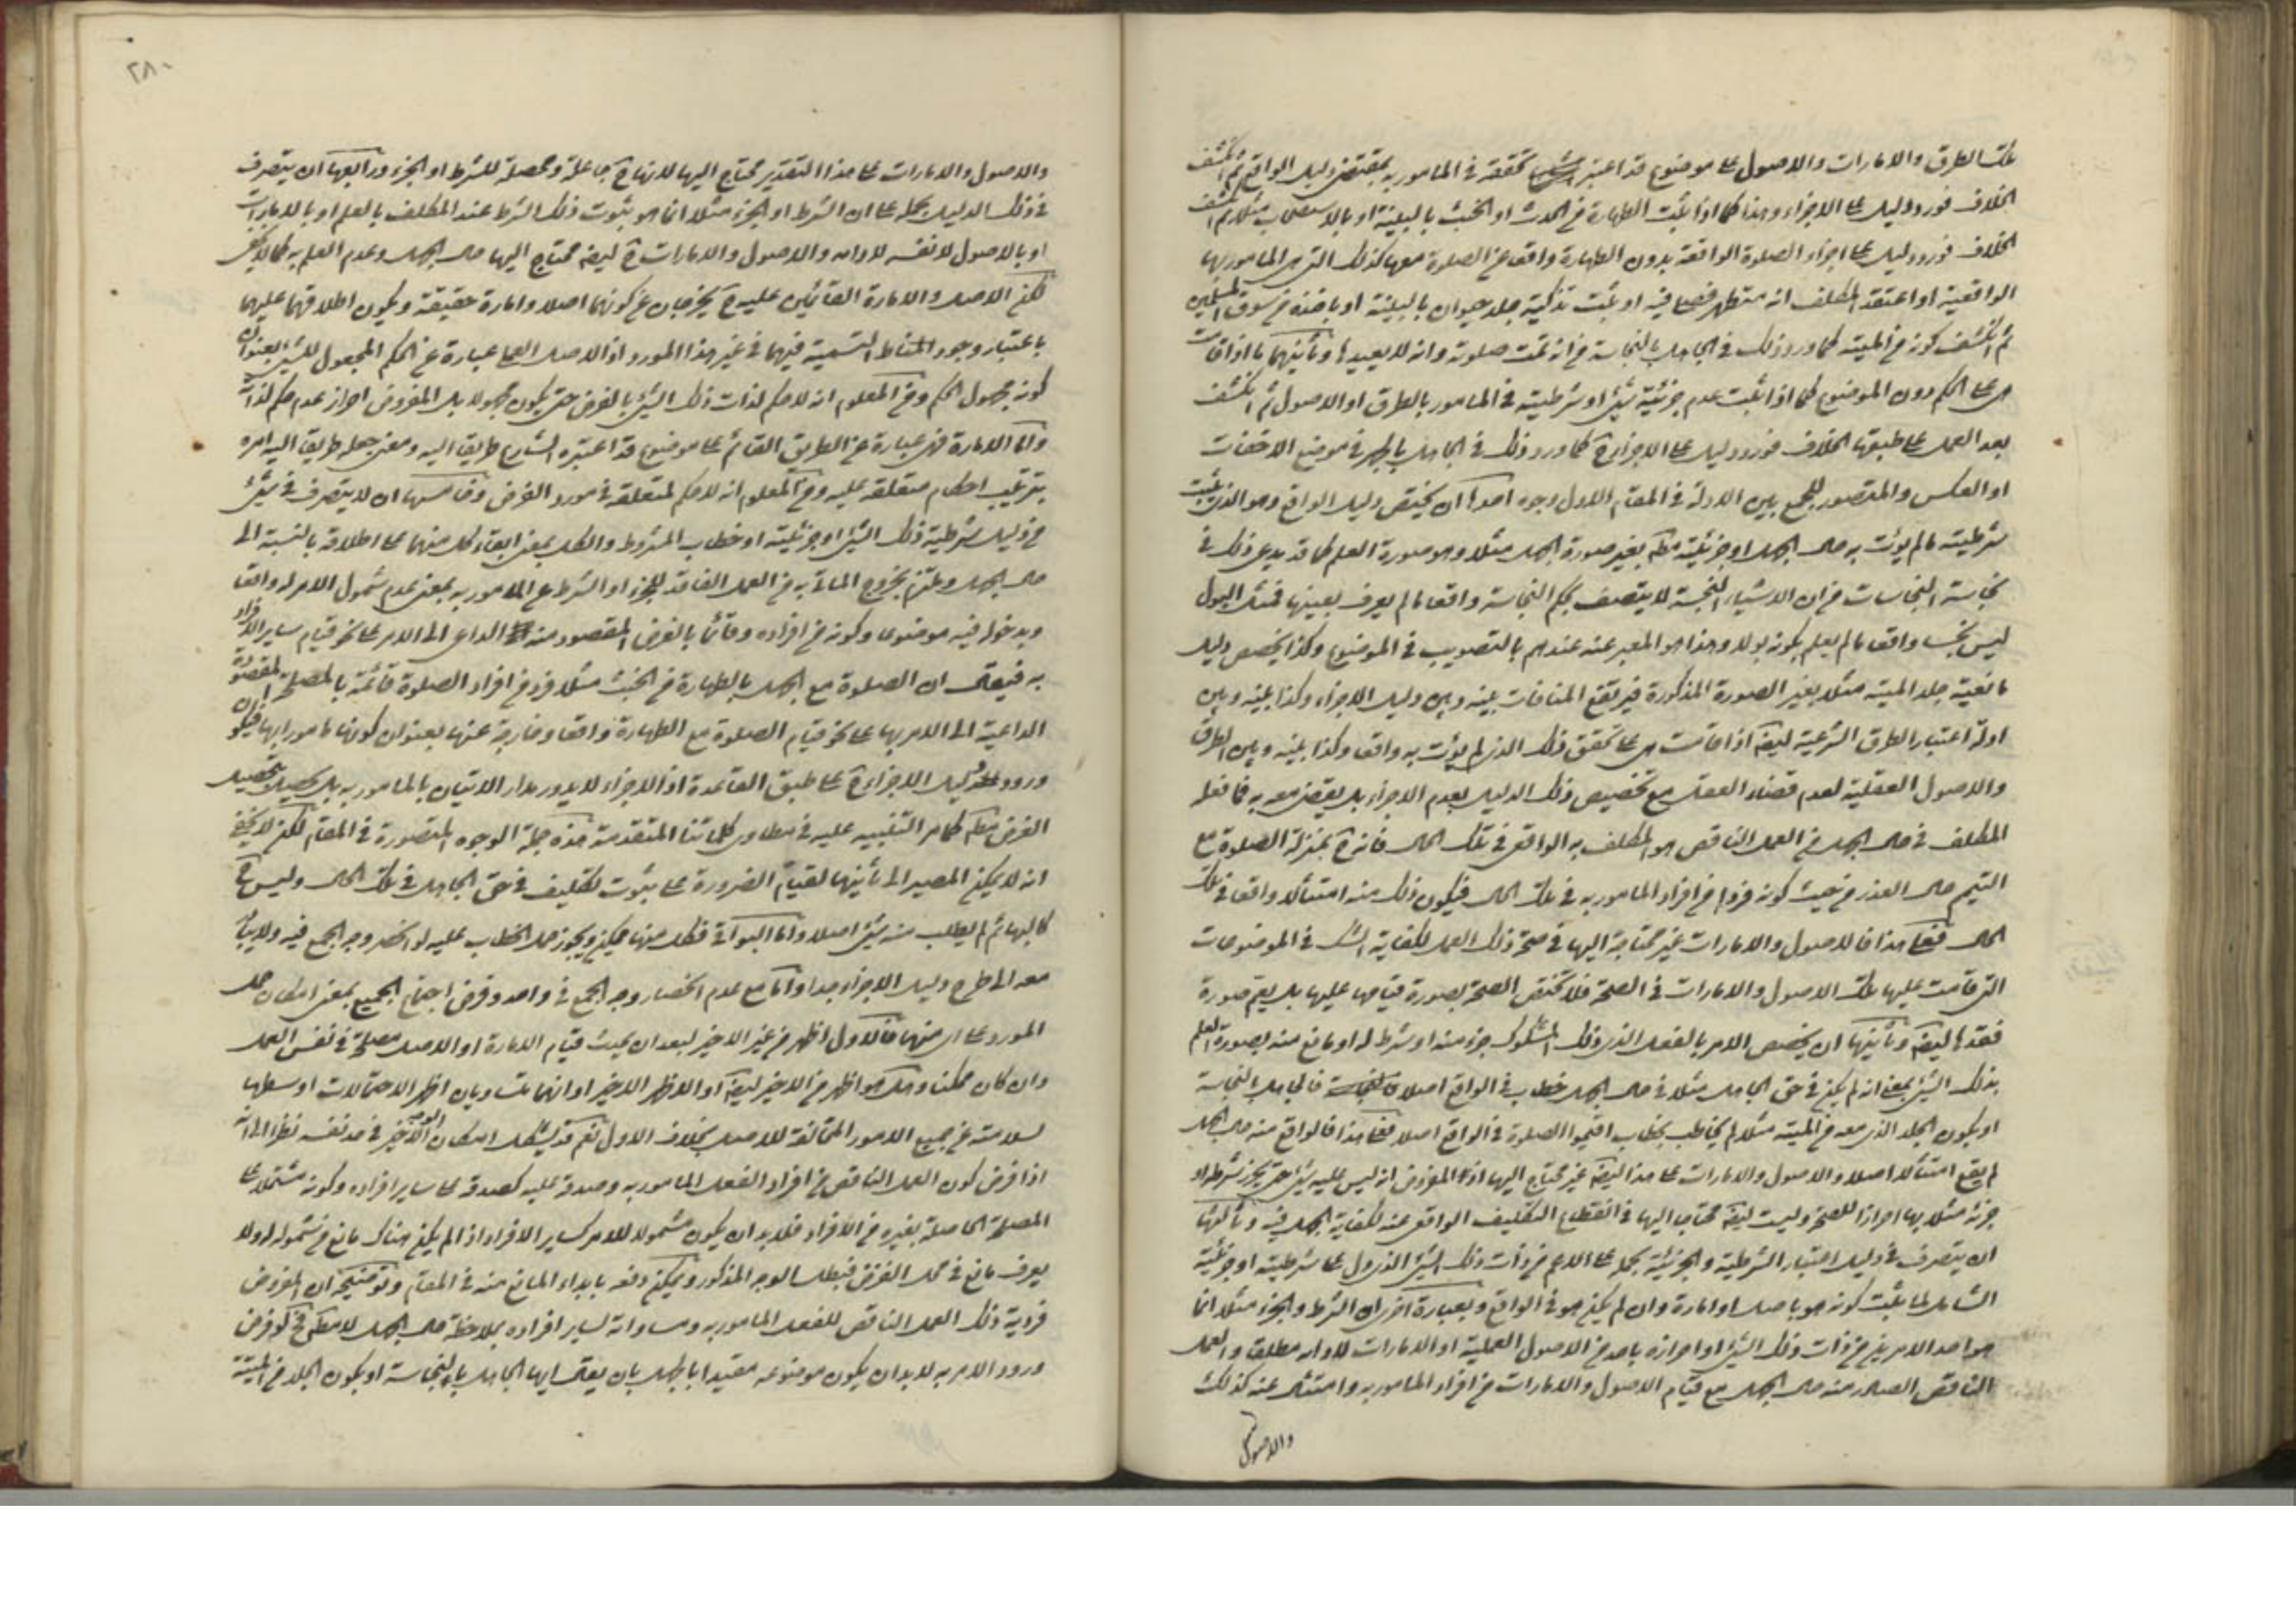 تلك الطرق والامارات والاصول على موضوع قد اعتبر تحققه في المامور به بمقتضى دليل الواقع ثم انكشف
الخلاف فورد دليل على الاجزاء وهذا كما اذا ثبت الطهارة من الحدث او الخبث بالبينة او بالاستصحاب مثلا ثم انكشف
الخلاف فورد دليل على اجزاء الصلوة الواقعة بدون الطهارة واقعا عن الصلوة معها كذلك التي هي المامور بها
الواقعية او اعتقد المكلف انه متطهر فصلى فيه او ثبت تذكية جلد حيوان بالبينة او باخذه من سوق المسلمين
ثم انكشف كونه من الميتة كما ورد ذلك في الجاهل بالنجاسة من انه تمت صلوته وانه لا يعيدها وثانيهما ما اذا قامت
هي على الحكم دون الموضوع كما اذا ثبت عدم جزئية شيء او شرطيته في المامور بالطرق او الاصول ثم انكشف
بعد العمل على طبقها الخلاف فورد دليل على الاجزاء ح كما ورد ذلك في الجاهل بالجهر في موضع الاخفات
او العكس والمتصور للجمع بين الادلة في المقام الاول وجوه احدها ان يختص دليل الواقع وهو الذي يثبت
شرطيته ما لم يؤت به حال الجهل او جزئيته مط بغير صورة الجهل مثلا وهو صورة العلم كما قد يدعى ذلك في
نجاسة النجاسات من ان الاشياء النجسة لا يتصف بحكم النجاسة واقعا ما لم يعرف بعينها فمثل البول
ليس نجسا واقعا ما لم يعلم بكونه بولا وهذا هو المعبر عنه عندهم بالتصويب في الموضوع وكذا يخصص دليل
مانعية جلد الميتة مثلا بغير الصورة المذكورة فيرتفع المنافات بينه وبين دليل الاجزاء وكذا بينه وبين
ادلة اعتبار الطرق الشرعية ايضا اذا قامت هي على تحقق ذلك الذي لم يؤت به واقعا وكذا بينه وبين الطرق
والاصول العقلية لعدم قضاء العقل مع تخصيص ذلك الدليل بعدم الاجزاء بل يقضي معه به فما فعله
المكلف في حال الجهل من العمل الناقص هو المكلف به الواقعي في تلك الحال فانه ح بمنزلة الصلوة مع
التيمم حال العذر من حيث كونه فردا من افراد المامور به في تلك الحال فيكون ذلك منه امتثالا واقعا في تلك
الحال فعلى هذا فالاصول والامارات غير محتاجة اليها في صحة ذلك العمل لكفاية الشك في الموضوعات
التي قامت عليها تلك الاصول والامارات في الصحة فلا تختص الصحة بصورة قيامها عليها بل يعم صورة
فقدها ايضا وثانيها ان يخصص الامر بالفعل الذي ذلك المشكوك جزء منه او شرط له او مانع منه بصورة العلم
بذلك الشيء بمعنى انه لم يكن في حق الجاهل مثلا في حال الجهل خطاب في الواقع اصلا فالجاهل بالنجاسة
او بكون الجلد الذي معه من الميتة مثلا لم يخاطب بخطاب اقيموا الصلوة في الواقع اصلا فعلى هذا فالواقع منه حال الجهل
لم يقع امتثالا اصلا والاصول والامارات على هذا ايضا غير محتاج اليها اذ المفروض انه ليس عليه شيء حتى يحرز شرطه او
جزئه مثلا بها احرازا للصحة وليست ايضا محتاجا اليها في انقطاع التكليف الواقعي عنه لكفاية الجهل فيه وثالثها
ان يتصرف في دليل اعتبار الشرطية والجزئية بحمله على الاعم من ذات ذلك الشيء الذي دل على شرطيته او جزئيته
الشامل لما يثبت كونه هو باصل او امارة وان لم يكن هو في الواقع وبعبارة اخرى ان الشرط والجزء مثلا انما
هو احد الامرين من ذات ذلك الشيء او احرازه باحد من الاصول العملية او الامارات لا ذاته مطلقا والعمل
الناقص الصادر منه حال الجهل مع قيام الاصول والامارات من افراد المامور به وامتثال عنه كذلك
والاصول
٢٨٠
والاصول والامارات على هذا التقدير محتاج اليها لانها ح جاعلة ومحصلة للشرط او الجزء ورابعها ان يتصرف
في ذلك الدليل بحمله على ان الشرط او الجزء مثلا انما هو ثبوت ذلك الشرط عند المكلف بالعلم او بالامارات
او بالاصول لا نفسه لا ذاته والاصول والامارات ح ايضا محتاج اليها حال الجهل وعدم العلم به كما لا يخفى
لكن الاصل والامارة القائمين عليه ح يخرجان عن كونهما اصلا وامارة حقيقة ويكون اطلاقهما عليهما
باعتبار وجود المناط التسمية فيهما في غير هذا المورد اذ الاصل العملي عبارة عن الحكم المجعول للشيء بعنوان
كونه مجهول الحكم ومن المعلوم انه لا حكم لذات ذلك الشيء بالفرض حتى يكون مجهولا بل المفروض احراز عدم حكم لذاته
واما الامارة فهي عبارة عن الطريق القائم على موضوع قد اعتبره الشارع طريقا اليه ومعنى جعله طريقا اليه امره
بترتيب احكام متعلقة عليه ومن المعلوم انه لا حكم لمتعلقه في مورد الفرض وخامسها ان لا يتصرف في شيء
من دليل شرطية ذلك الشيء او جزئيته او خطاب المشروط والكل بمعنى ابقاء كل منهما على اطلاقه بالنسبة الى
حال الجهل ويلتزم بخروج الماتي به من العمل الفاقد للجزء او الشرط عن المامور به بمعنى عدم شمول الامر له واقعا
وبدخوله فيه موضوعا وكونه من افراده وقائما بالغرض المقصود منه الداعي الى الامر على نحو قيام ساير الافراد
به فيقال ان الصلوة مع الجهل بالطهارة من الخبث مثلا فرد من افراد الصلوة قائمة بالمصلحة المقصودة
الداعية الى الامر بها على نحو قيام الصلوة مع الطهارة واقعا وخارجة عنها بعنوان كونها مامورا بها فيكون
ورود دليل الاجزاء ح على طبق القاعدة اذ الاجزاء لا يدور مدار الاتيان بالمامور به بل تحصيل
الغرض مط كما مر التنبيه عليه في مطاوي كلماتنا المتقدمة هذه جملة الوجوه المتصورة في المقام لكن لا يخفى
انه لا يمكن المصير الى ثانيها لقيام الضرورة على ثبوت تكليف في حق الجاهل في تلك الحال وليس ح
كالبهائم لم يطلب منه شيء اصلا واما البواقي فكل منها ممكن ويجوز حمل الخطاب عليه لو انحصر وجه الجمع فيه ولا يثبت
معه الى طرح دليل الاجزاء جدا واما مع عدم انحصار وجه الجمع في واحد وفرض اجتماع الجميع بمعنى امكان حمل
المورد على اي منها فالاول اظهر من غير الاخير لبعد ان يحدث قيام الامارة او الاصل مصلحة في نفس العمل
وان كان ممكنا وهل هو اظهر من الاخير ايضا او الاظهر الاخير او انهما متساويان اظهر الاحتمالات اوسطها
لسلامته عن جميع الامور المخالفة للاصل بخلاف الاول نعم قد يشكل امكان الوجه الاخير في حد نفسه نظرا الى انه
اذا فرض كون العمل الناقص من افراد الفعل المامور به وصدقه عليه كصدقه على ساير افراده وكونه مشتملا على
المصلحة الحاصلة بغيره من الافراد فلا بد ان يكون مشمولا للامر كساير الافراد اذا لم يكن هناك مانع من شموله له ولا
يعرف مانع في محل الفرض فيبطل الوجه المذكور ويمكن دفعه بابداء المانع منه في المقام وتوضيحه ان المفروض
فردية ذلك العمل الناقص للفعل المامور به ومساواته لساير افراده بملاحظة حال الجهل لا مطلقا ح فلو فرض
ورود الامر به لا بد ان يكون موضوعه مقيدا بالجهل بان يقال ايها الجاهل بالنجاسة او بكون الجلد من الميتة